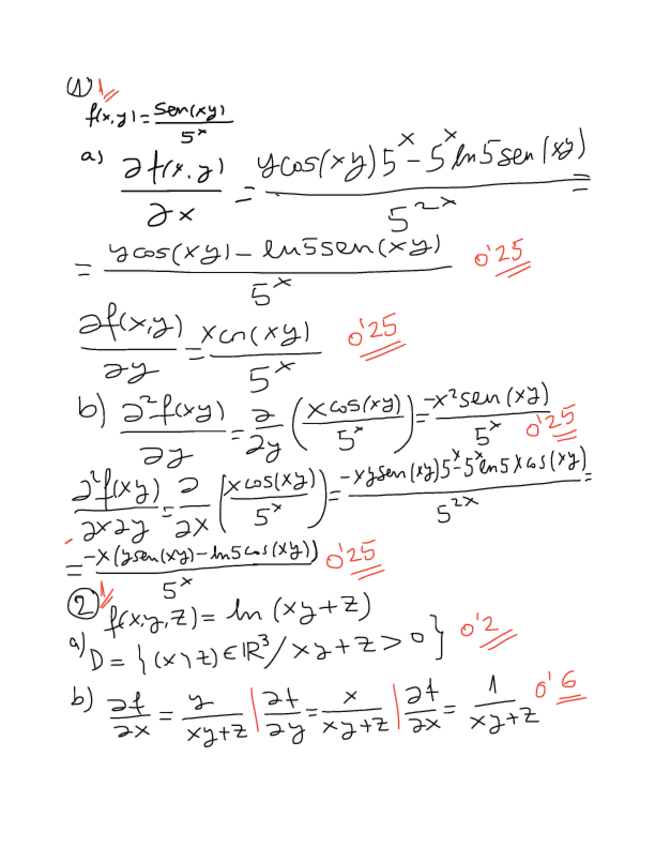 ① 1
f(x,y) = sen(xy) / 5^x
a) ∂f(x,y) / ∂x = (y cos(xy) 5^x - 5^x ln5 sen(xy)) / 5^2x =
= (y cos(xy) - ln5 sen(xy)) / 5^x 0'25
∂f(x,y) / ∂y = x cn(xy) / 5^x 0'25
b) ∂²f(xy) / ∂y = ∂/∂y (x cos(xy) / 5^x) = -x² sen(xy) / 5^x 0'25
∂²f(xy) / ∂x∂y = ∂/∂x (x cos(xy) / 5^x) = (-xy sen(xy) 5^x - 5^x ln5 x cos(xy)) / 5^2x =
= -x (y sen(xy) - ln5 cos(xy)) / 5^x 0'25
② 1 f(x,y,z) = ln (xy+z)
a) D = {(x y z) ∈ ℝ³ / xy+z > 0} 0'2
b) ∂f/∂x = y / (xy+z) | ∂f/∂y = x / (xy+z) | ∂f/∂x = 1 / (xy+z) 0'6